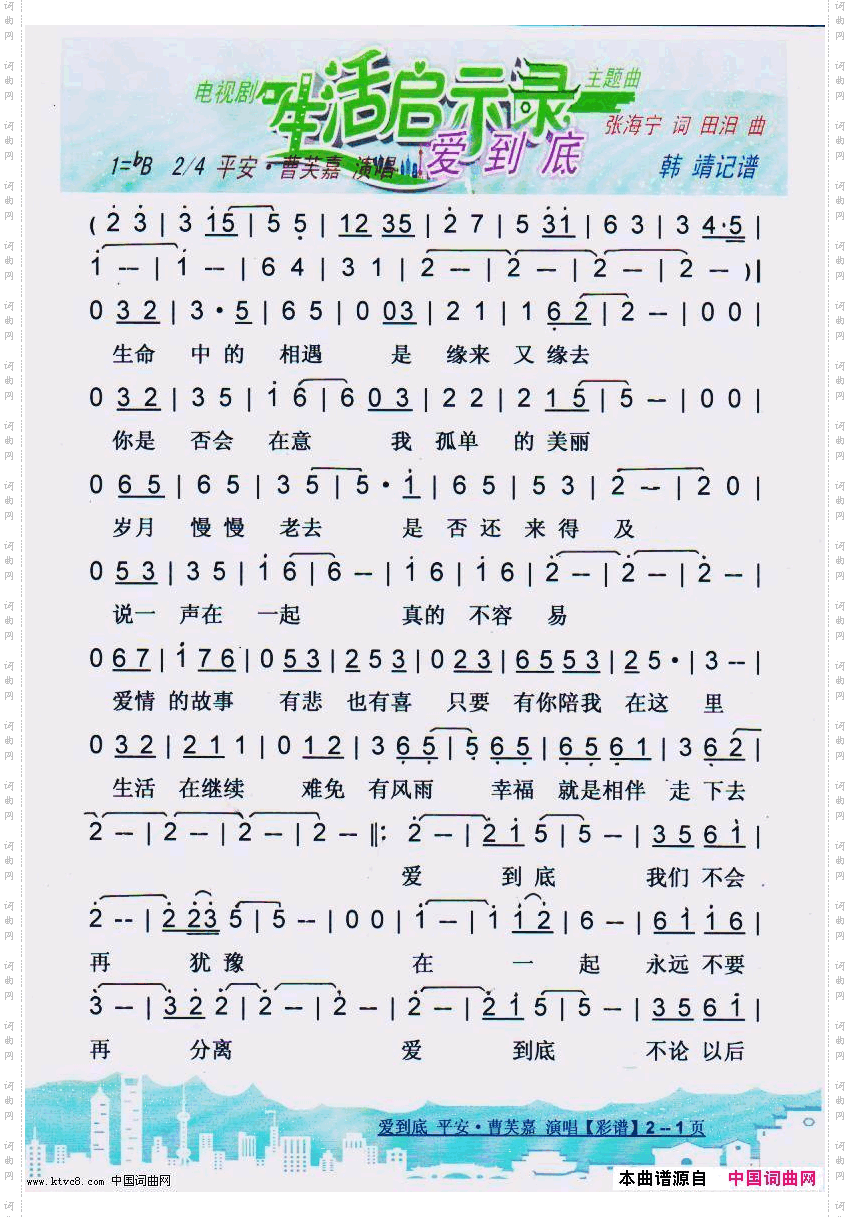 电视剧 生活启示录 主题曲
张海宁 词 田汨 曲
1=♭B 2/4 平安·曹芙嘉 演唱 爱到底 韩 靖记谱
( 2 3 | 3 1 5 | 5 5 | 12 35 | 2 7 | 5 31 | 6 3 | 3 4·5 |
1 -- | 1 -- | 6 4 | 3 1 | 2 -- | 2 -- | 2 -- | 2 -- )|
0 32 | 3 · 5 | 6 5 | 0 03 | 2 1 | 1 62 | 2 -- | 0 0 |
生命 中的 相遇 是 缘来 又 缘去
0 32 | 3 5 | 1 6 | 6 03 | 2 2 | 2 15 | 5 -- | 0 0 |
你是 否会 在意 我 孤单 的 美丽
0 65 | 6 5 | 3 5 | 5 · 1 | 6 5 | 5 3 | 2 -- | 2 0 |
岁月 慢慢 老去 是 否还 来得 及
0 53 | 3 5 | 1 6 | 6 -- | 1 6 | 1 6 | 2 -- | 2 -- | 2 -- |
说一 声在 一起 真的 不容 易
0 67 | 1 76 | 0 53 | 2 53 | 0 23 | 65 53 | 2 5 · | 3 -- |
爱情 的故事 有悲 也有喜 只要 有你陪我 在这 里
0 32 | 21 1 | 0 12 | 3 65 | 5 65 | 65 61 | 3 62 |
生活 在继续 难免 有风雨 幸福 就是相伴 走 下去
2 -- | 2 -- | 2 -- | 2 -- ‖: 2 -- | 21 5 | 5 -- | 35 61 |
爱 到 底 我们 不会
2 -- | 2 23 5 | 5 -- | 0 0 | 1 -- | 1 12 | 6 -- | 61 16 |
再 犹豫 在 一 起 永远 不要
3 -- | 32 2 | 2 -- | 2 -- | 2 -- | 21 5 | 5 -- | 35 61 |
再 分离 爱 到底 不论 以后
爱到底 平安·曹芙嘉 演唱【彩谱】2--1页
www.ktvc8.com 中国词曲网
本曲谱源自 中国词曲网